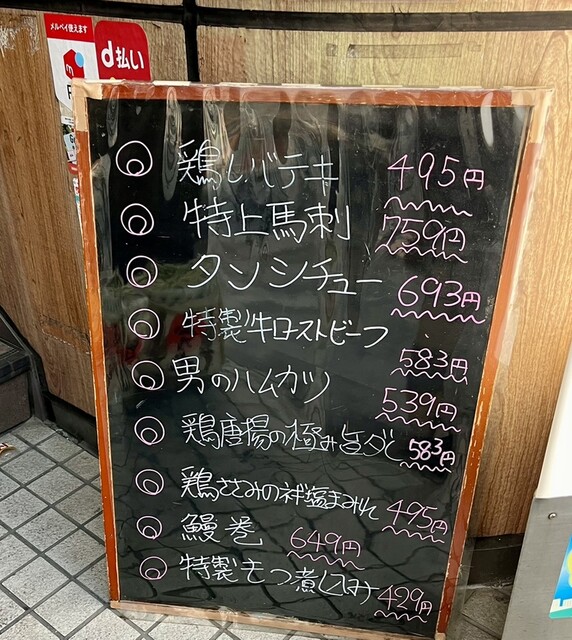 メルペイ使えます
d払い
鶏レバテキ 495円
特上馬刺 759円
タンシチュー 693円
特製牛ローストビーフ 583円
男のハムカツ 539円
鶏唐揚の極み 583円
鶏ささみの 塩まみれ 495円
鰻巻 649円
特製もつ煮込み 429円